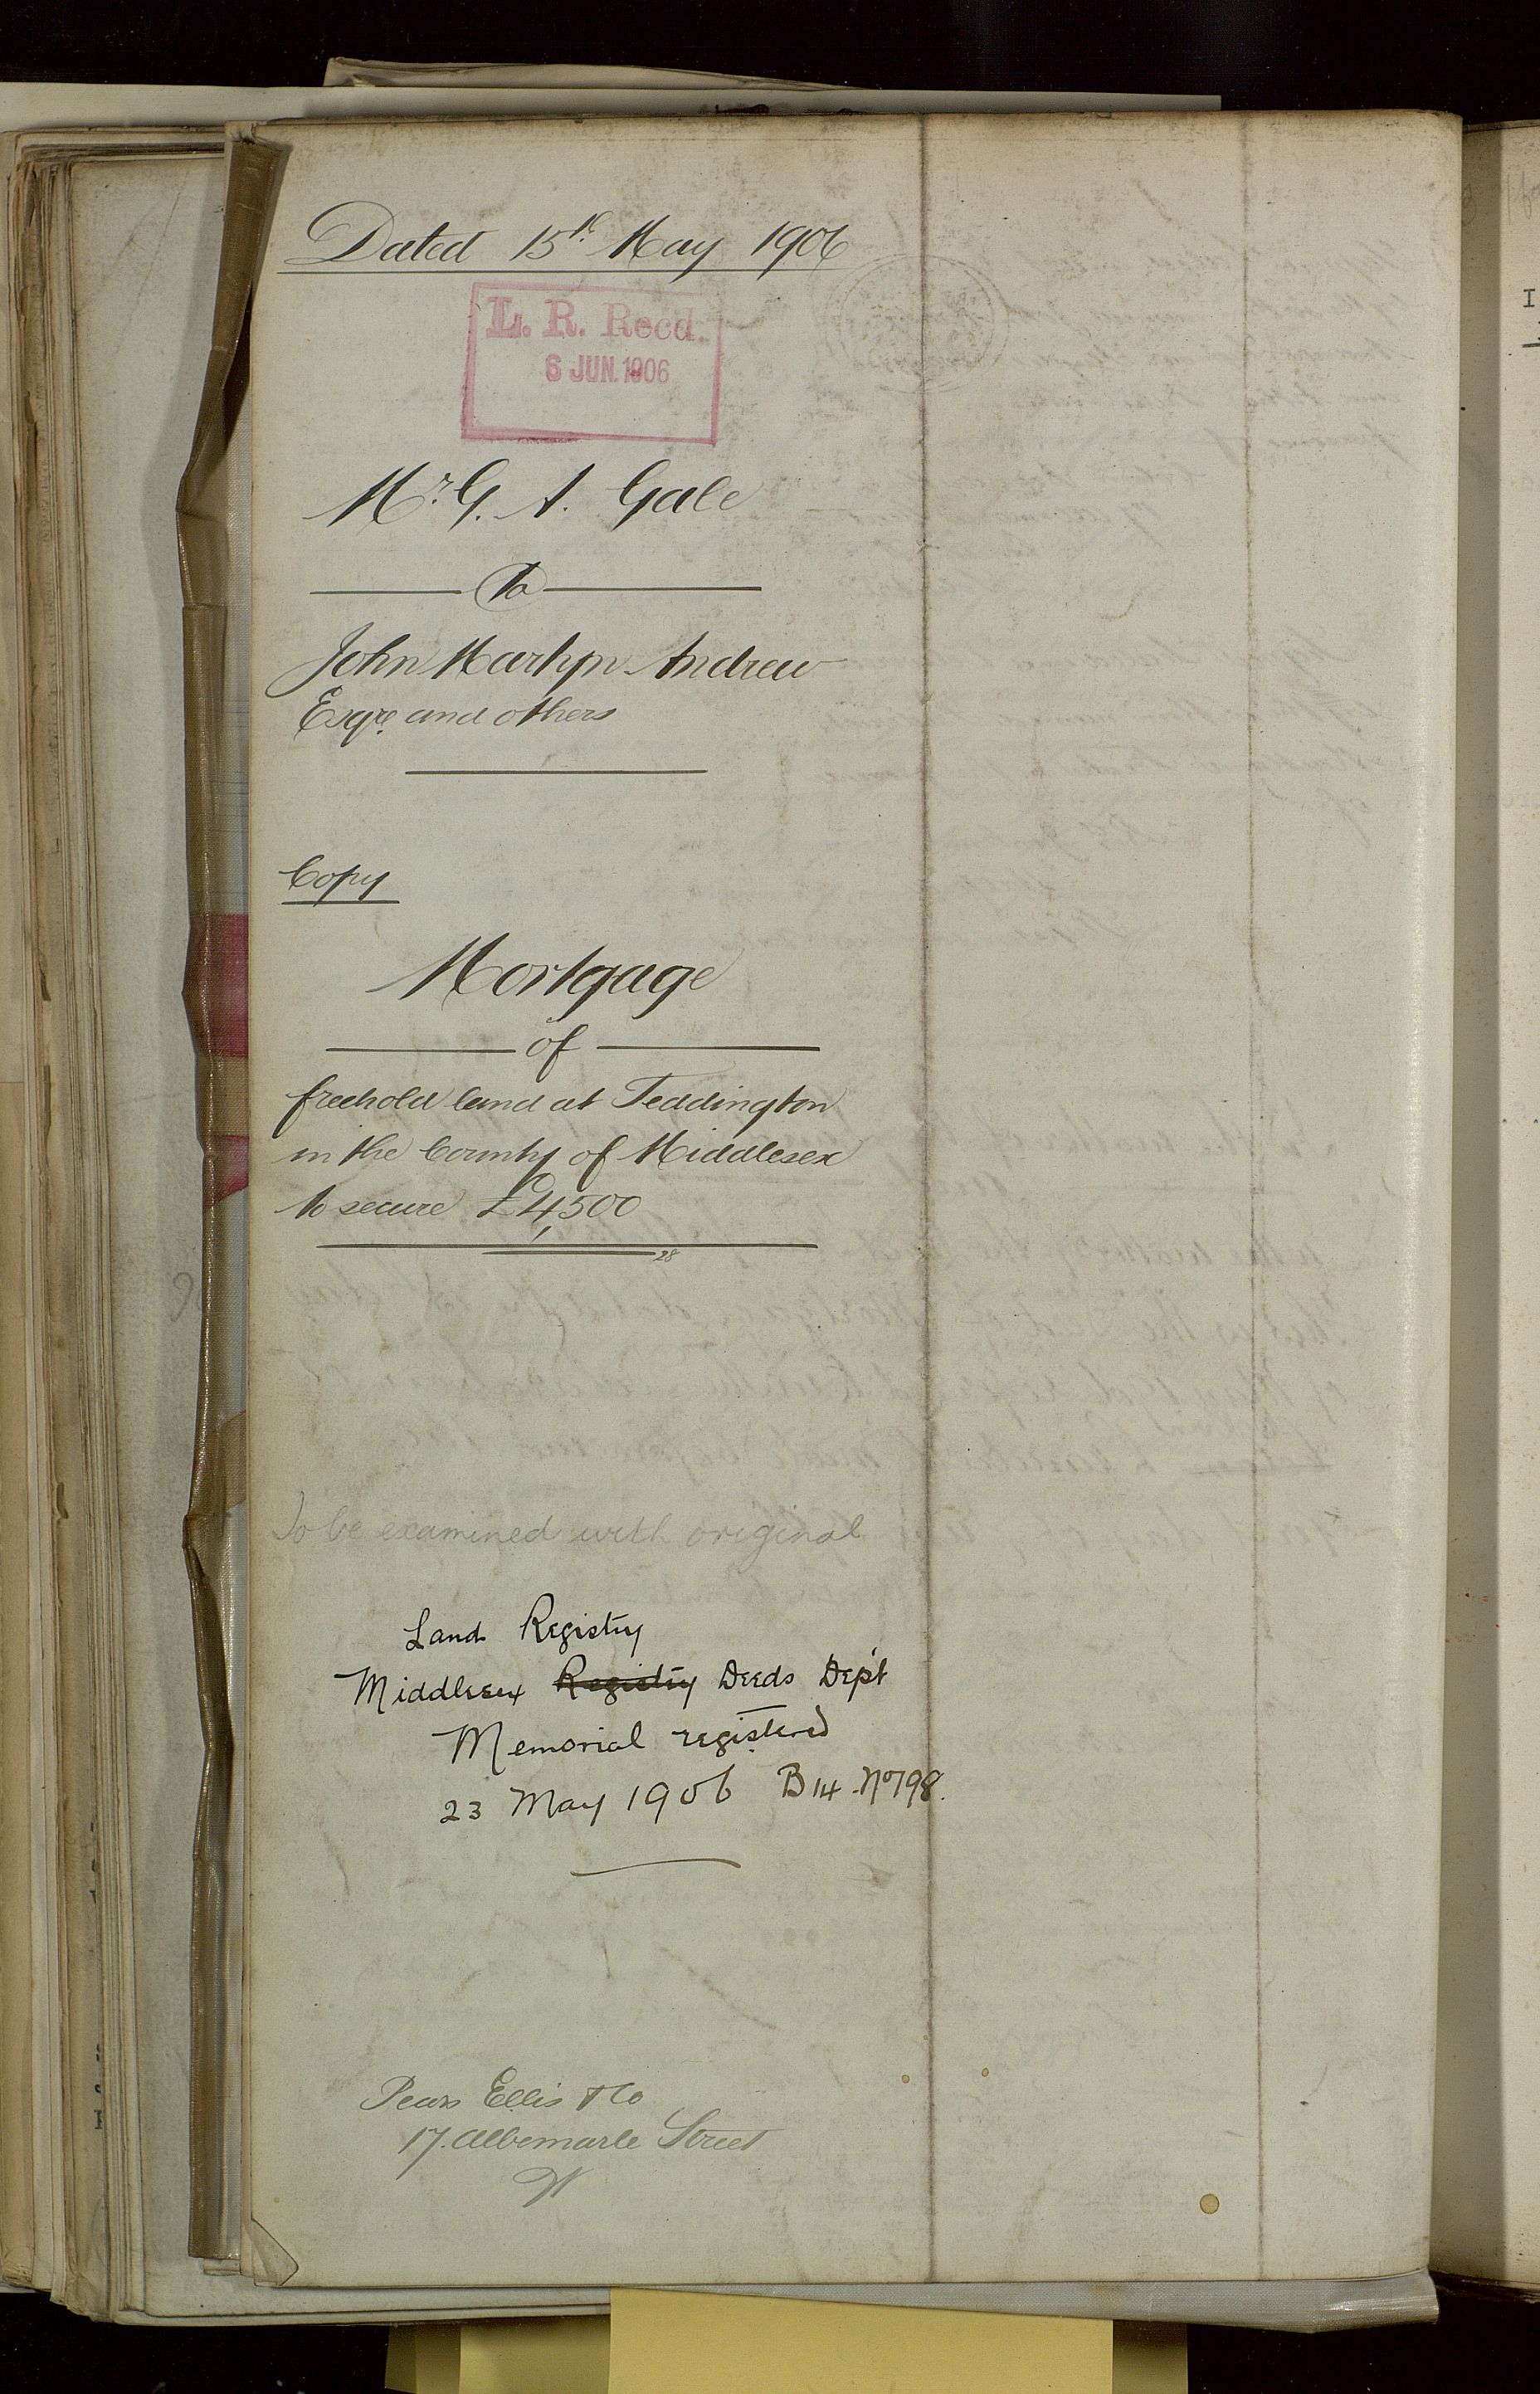 Dated 15th May 1906
L. R. Recd.
6 JUN. 1906
Mr. G. A. Gale
To
John Martyn Andrew
Esqre. and others
Copy
Mortgage
of
freehold land at Teddington
in the County of Middlesex
to secure £4,500
28
To be examined with original
Land Registry
Middlesex Registry Deeds Dep't
Memorial registered
23 May 1906 B 14 No 798.
Pears Ellis & Co
17. Albemarle Street
W